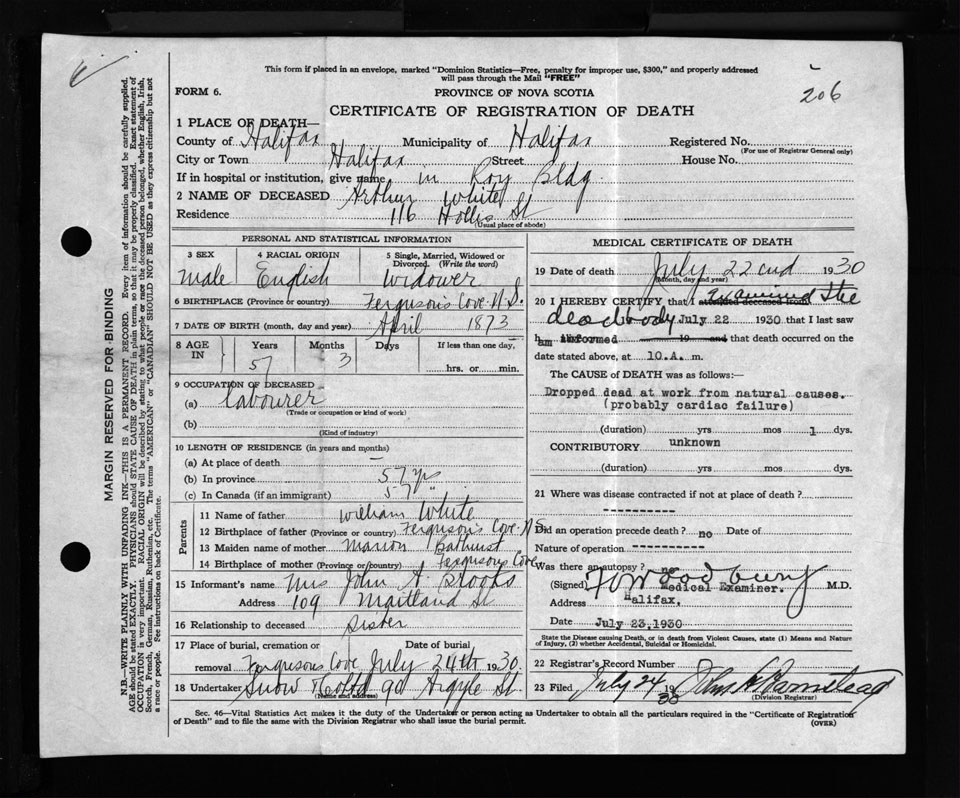 This form if placed in an envelope, marked "Dominion Statistics—Free, penalty for improper use, $300," and properly addressed
will pass through the Mail "FREE"
206
FORM 6.
PROVINCE OF NOVA SCOTIA
CERTIFICATE OF REGISTRATION OF DEATH
1 PLACE OF DEATH—
County of Halifax Municipality of Halifax Registered No.
(For use of Registrar General only)
City or Town Halifax Street House No.
If in hospital or institution, give name in Roy Bldg.
2 NAME OF DECEASED Arthur White
Residence 116 Hollis St
(Usual place of abode)
PERSONAL AND STATISTICAL INFORMATION
3 SEX 4 RACIAL ORIGIN 5 Single, Married, Widowed or Divorced. (Write the word)
Male English Widower
6 BIRTHPLACE (Province or country) Ferguson's Cove N.S.
7 DATE OF BIRTH (month, day and year) April 1873
8 AGE IN Years Months Days If less than one day
57 3 hrs. or min.
9 OCCUPATION OF DECEASED
(a) Labourer
(Trade or occupation or kind of work)
(b)
(Kind of industry)
10 LENGTH OF RESIDENCE (in years and months)
(a) At place of death —
(b) In province 57 yrs
(c) In Canada (if an immigrant) 57 "
Parents
11 Name of father William White
12 Birthplace of father (Province or country) Ferguson's Cove N.S
13 Maiden name of mother Marion Bathurst
14 Birthplace of mother (Province or country) Fergusons Cove
15 Informant's name Mrs John A. Brooks
Address 109 Maitland St
16 Relationship to deceased Sister
17 Place of burial, cremation or removal Date of burial
Fergusons Cove July 24th 1930.
18 Undertaker Snow & Co Ltd 90 Argyle St
(Name and address)
MEDICAL CERTIFICATE OF DEATH
19 Date of death July 22nd 1930
(Month, day and year)
20 I HEREBY CERTIFY that I attended deceased from examined the
dead body July 22 1930 that I last saw
h am informed 19 and that death occurred on the
date stated above, at 10.A. m.
The CAUSE of DEATH was as follows:—
Dropped dead at work from natural causes.
(probably cardiac failure)
(duration) yrs mos 1 dys.
CONTRIBUTORY unknown
(duration) yrs. mos. dys.
21 Where was disease contracted if not at place of death?
-----------
Did an operation precede death? no Date of
Nature of operation -----------
Was there an autopsy? no
(Signed) Woodbury M.D.
Medical Examiner.
Address Halifax.
Date July 23,1930
State the Disease causing Death, or in death from Violent Causes, state (1) Means and Nature
of Injury, (2) whether Accidental, Suicidal or Homicidal.
22 Registrar's Record Number
23 Filed July 24 1930 John H Barnstead
(Division Registrar)
Sec. 46—Vital Statistics Act makes it the duty of the Undertaker or person acting as Undertaker to obtain all the particulars required in the "Certificate of Registration
of Death" and to file the same with the Division Registrar who shall issue the burial permit.
(OVER)
MARGIN RESERVED FOR BINDING
N.B.—WRITE PLAINLY WITH UNFADING INK—THIS IS A PERMANENT RECORD. Every item of information should be carefully supplied.
AGE should be stated EXACTLY. PHYSICIANS should STATE CAUSE OF DEATH in plain terms, so that it may be properly classified. Exact statement of
OCCUPATION is very important. RACIAL ORIGIN will be described by stating to what people or race the deceased person belonged, whether English, Irish,
Scotch, French, German, Russian, Ruthenian, etc. The terms "AMERICAN" or "CANADIAN" SHOULD NOT BE USED as they express citizenship but not
a race or people. See instructions on back of Certificate.